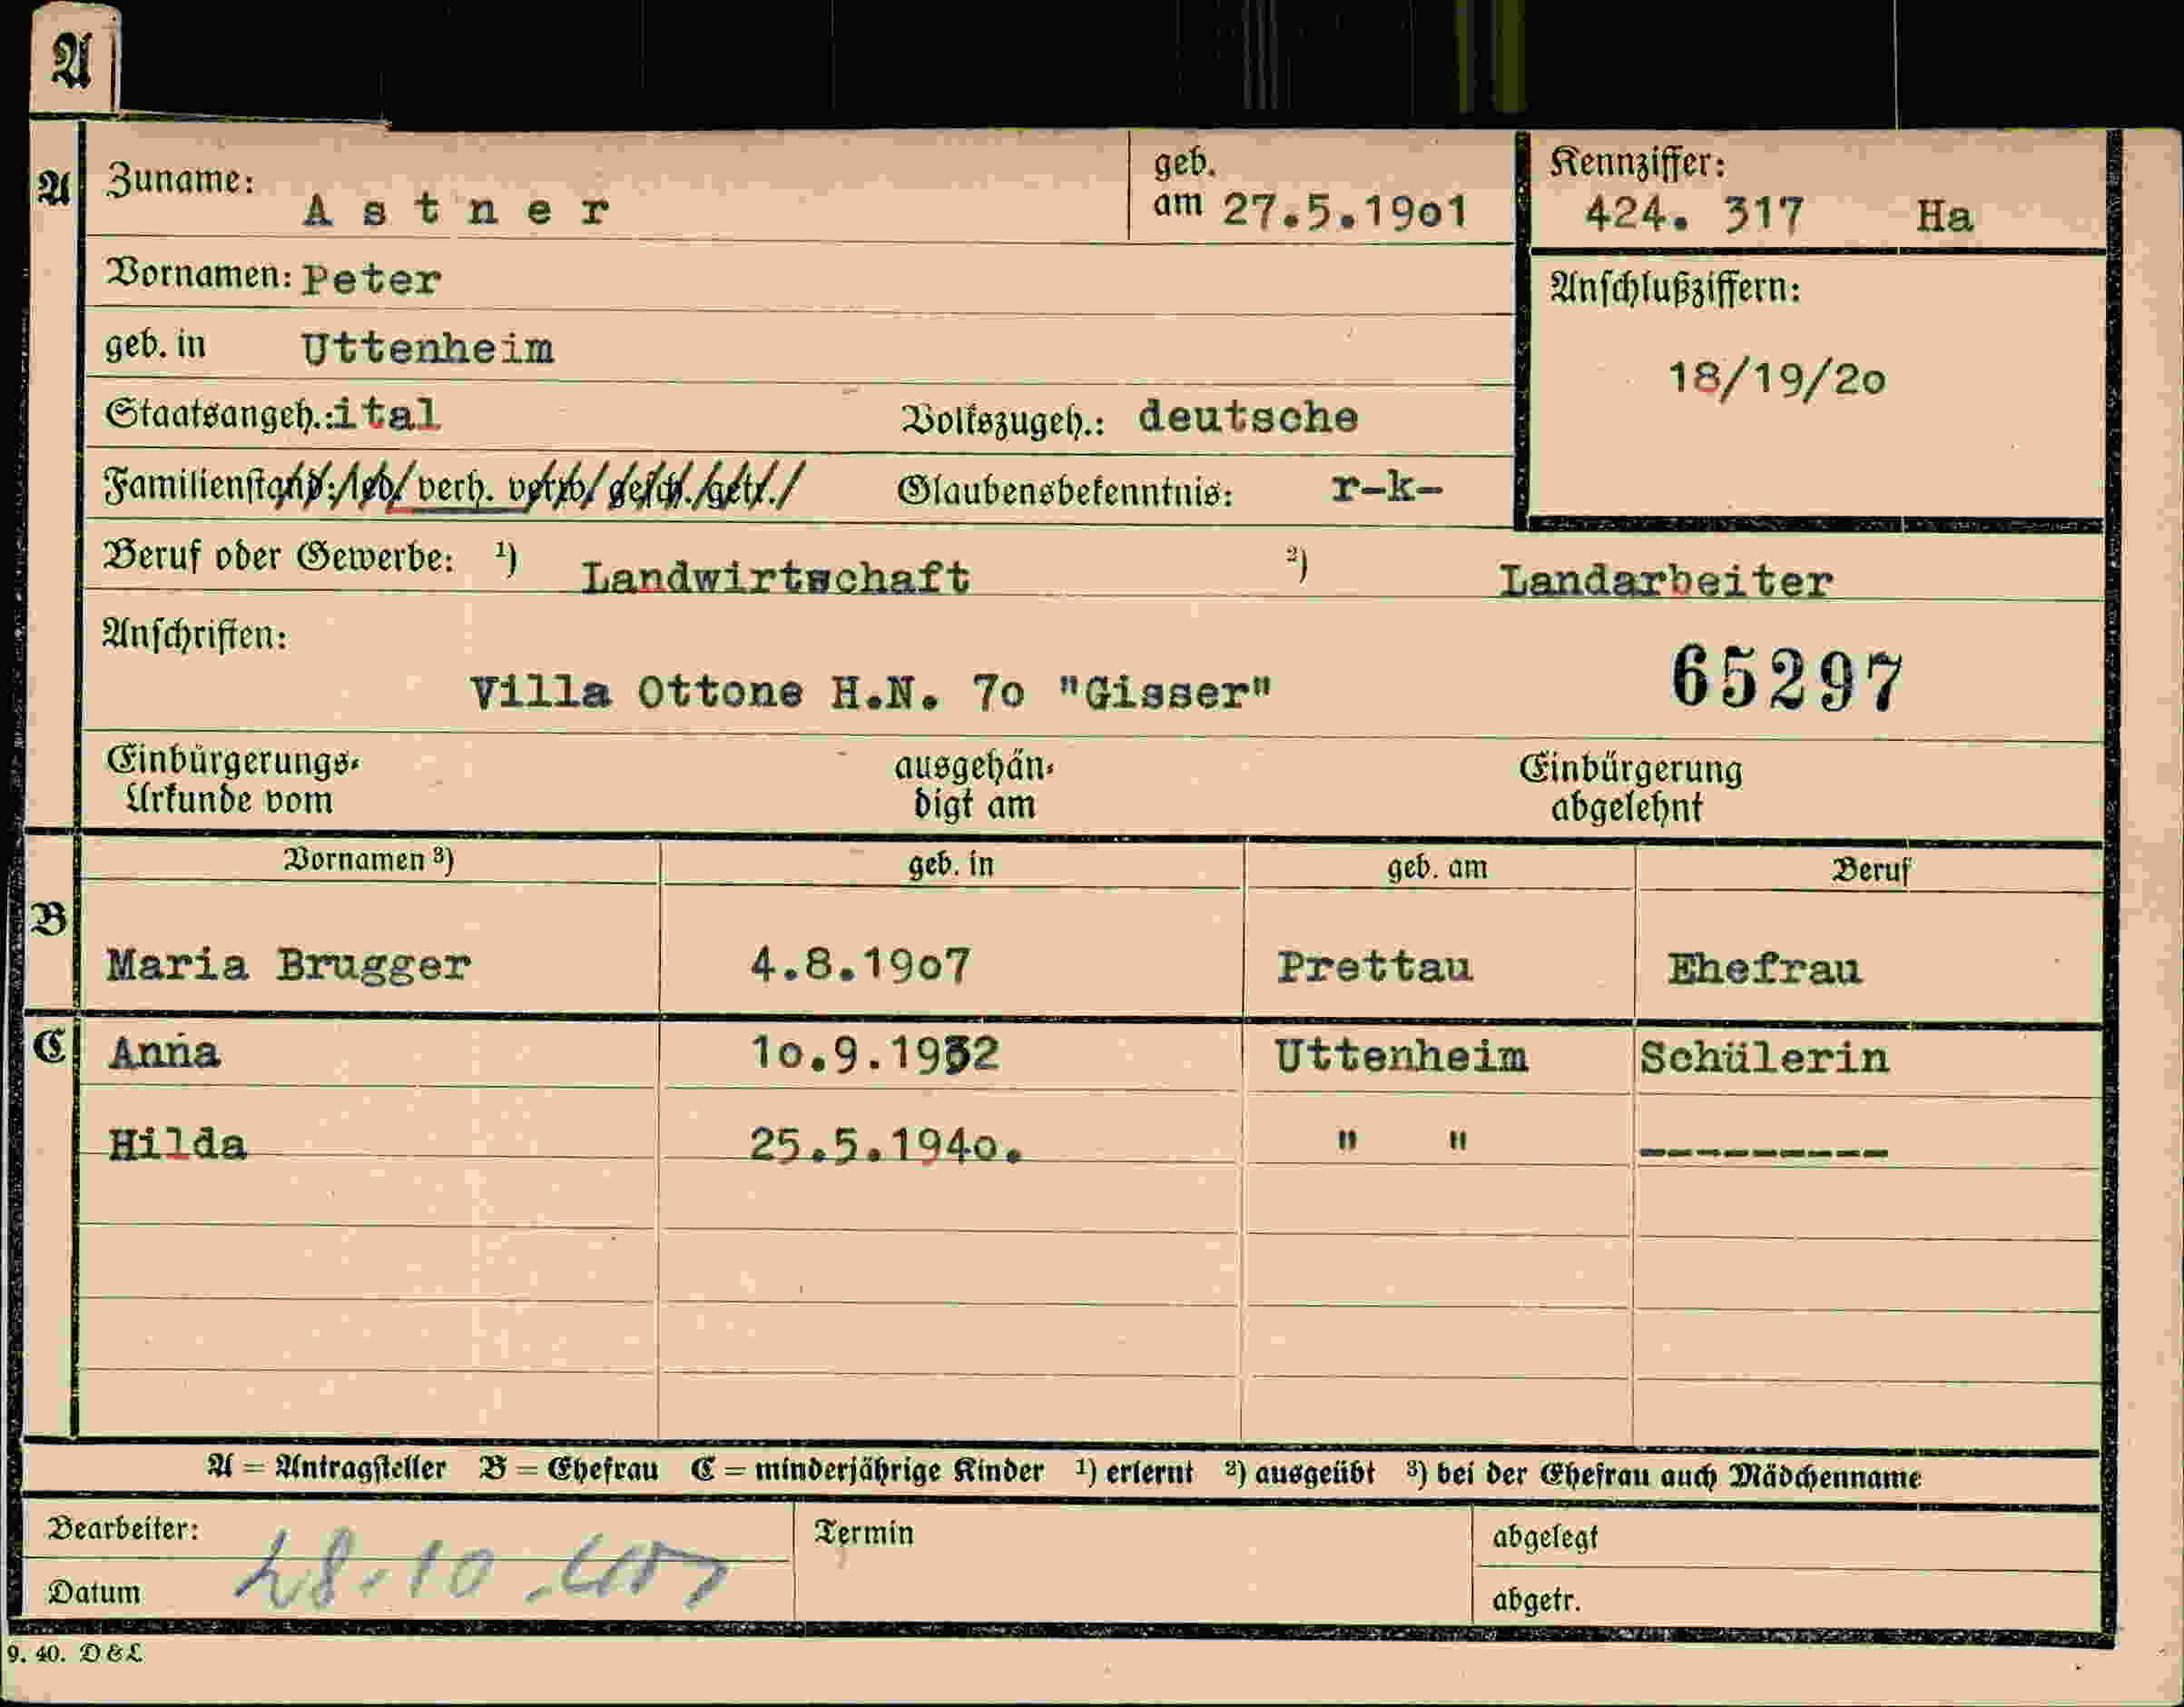 A
A Zuname: Astner geb. am 27.5.1901 Kennziffer: 424. 317 Ha
Vornamen: Peter Anschlußziffern:
geb. in Uttenheim 18/19/20
Staatsangeh.: ital Volkszugeh.: deutsche
Familienstand: led. verh. verw. gesch. getr. Glaubensbekenntnis: r-k-
Beruf oder Gewerbe: 1) Landwirtschaft 2) Landarbeiter
Anschriften:
Villa Ottone H.N. 70 "Gisser" 65297
Einbürgerungs- ausgehän- Einbürgerung
Urkunde vom digt am abgelehnt
Vornamen 3) geb. in geb. am Beruf
B
Maria Brugger 4.8.1907 Prettau Ehefrau
C Anna 10.9.1932 Uttenheim Schülerin
Hilda 25.5.1940. " " ---------
A = Antragsteller B = Ehefrau C = minderjährige Kinder 1) erlernt 2) ausgeübt 3) bei der Ehefrau auch Mädchenname
Bearbeiter: Termin abgelegt
Datum 28.10. abgetr.
9. 40. D & L